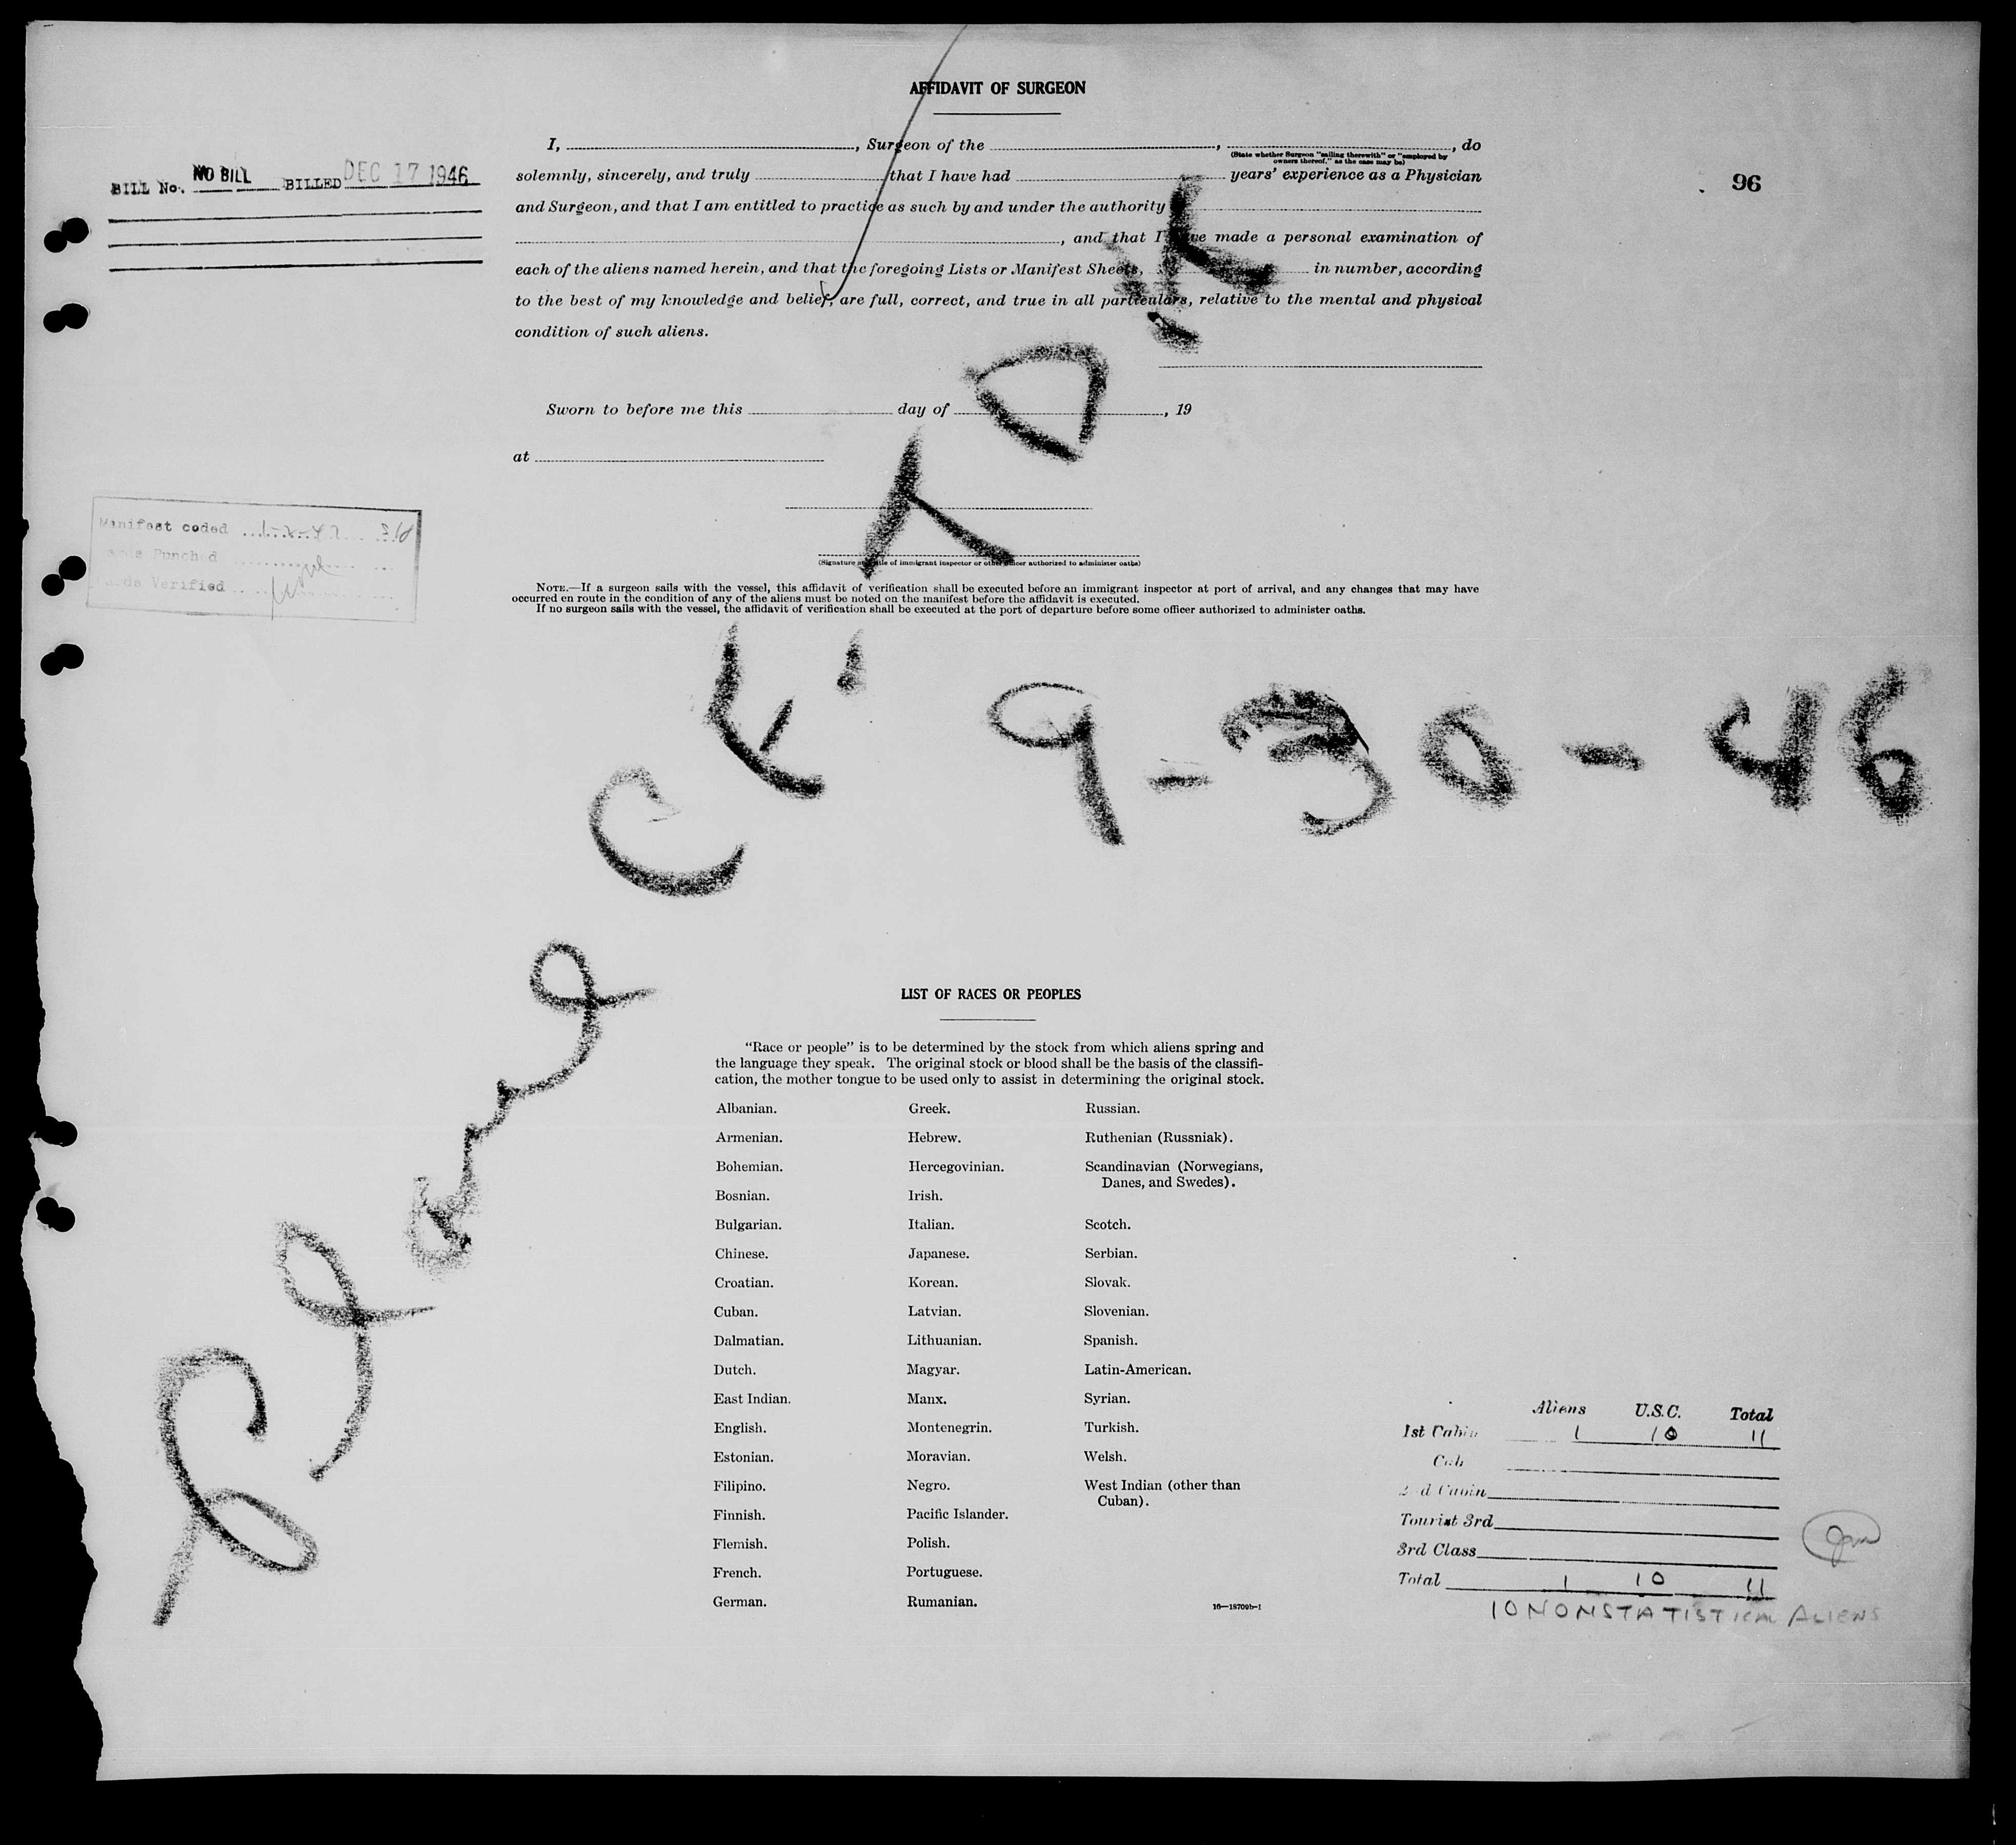 AFFIDAVIT OF SURGEON
I, , Surgeon of the , , do
(State whether Surgeon "sailing therewith" or "employed by
owners thereof," as the case may be)
solemnly, sincerely, and truly that I have had years' experience as a Physician
and Surgeon, and that I am entitled to practice as such by and under the authority
, and that I have made a personal examination of
each of the aliens named herein, and that the foregoing Lists or Manifest Sheets, in number, according
to the best of my knowledge and belief, are full, correct, and true in all particulars, relative to the mental and physical
condition of such aliens.
BILL No. NO BILL BILLED DEC 17 1946
96
Sworn to before me this day of , 19
at
Manifest coded
Punched
Verified
(Signature and title of immigrant inspector or other officer authorized to administer oaths)
NOTE.—If a surgeon sails with the vessel, this affidavit of verification shall be executed before an immigrant inspector at port of arrival, and any changes that may have
occurred en route in the condition of any of the aliens must be noted on the manifest before the affidavit is executed.
If no surgeon sails with the vessel, the affidavit of verification shall be executed at the port of departure before some officer authorized to administer oaths.
Plane
9-30-46
LIST OF RACES OR PEOPLES
"Race or people" is to be determined by the stock from which aliens spring and
the language they speak. The original stock or blood shall be the basis of the classifi-
cation, the mother tongue to be used only to assist in determining the original stock.
Albanian.
Armenian.
Bohemian.
Bosnian.
Bulgarian.
Chinese.
Croatian.
Cuban.
Dalmatian.
Dutch.
East Indian.
English.
Estonian.
Filipino.
Finnish.
Flemish.
French.
German.
Greek.
Hebrew.
Hercegovinian.
Irish.
Italian.
Japanese.
Korean.
Latvian.
Lithuanian.
Magyar.
Manx.
Montenegrin.
Moravian.
Negro.
Pacific Islander.
Polish.
Portuguese.
Rumanian.
Russian.
Ruthenian (Russniak).
Scandinavian (Norwegians,
Danes, and Swedes).
Scotch.
Serbian.
Slovak.
Slovenian.
Spanish.
Latin-American.
Syrian.
Turkish.
Welsh.
West Indian (other than
Cuban).
16—18709b-1
Aliens U.S.C. Total
1st Cabin 1 10 11
Cab
2nd Cabin
Tourist 3rd
3rd Class
Total 1 10 11
10 NONSTATISTICAL ALIENS